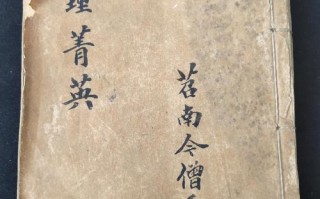 理菁英
苕南今僧